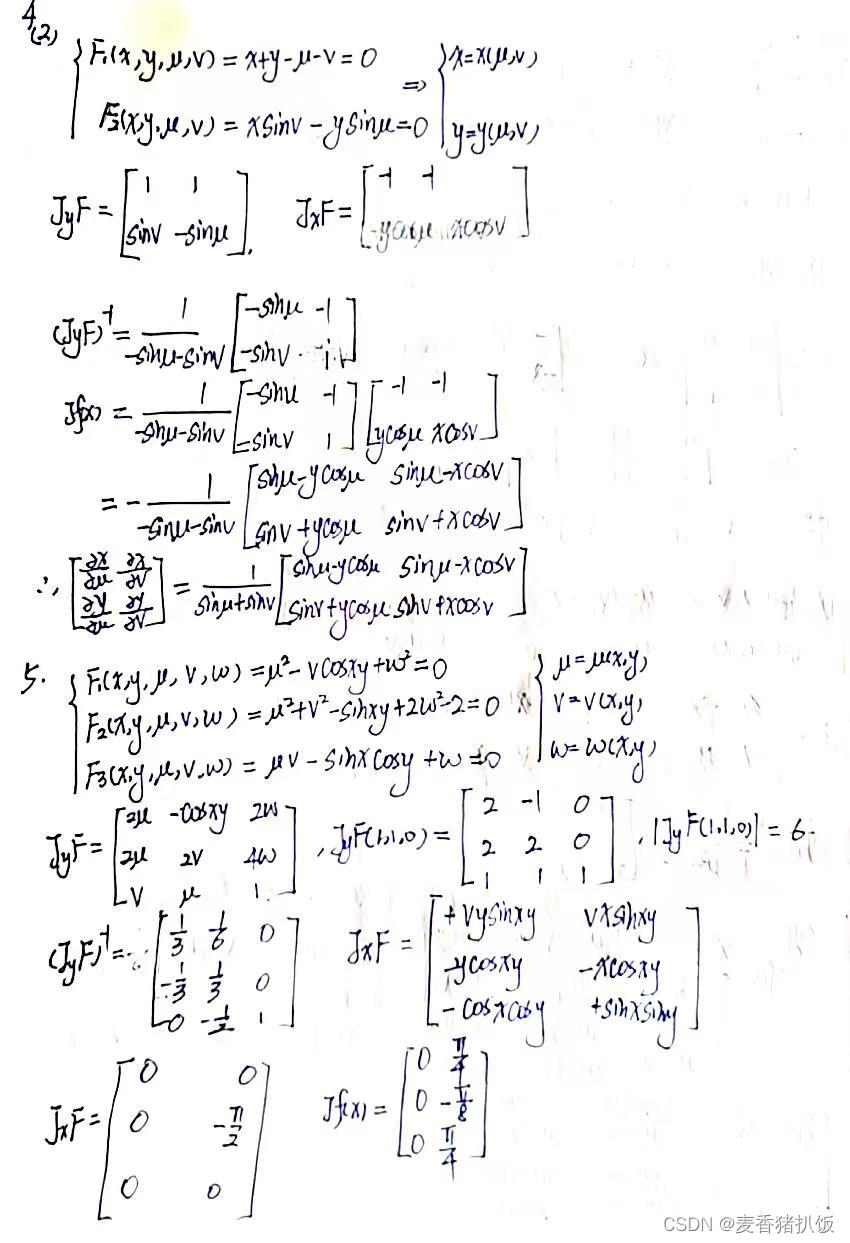 4
(2)
F₁(x,y,μ,v) = x+y-μ-v = 0 ⇒ { x=x(μ,v)
F₂(x,y,μ,v) = xsinv - ysinμ = 0 y=y(μ,v)
JyF = [ 1 1 ; sinv -sinμ ]. JxF = [ -1 -1 ; -ycosμ xcosv ]
(JyF)⁻¹ = 1/(-sinμ-sinv) [ -sinμ -1 ; -sinv 1 ]
Jf(x) = 1/(-sinμ-sinv) [ -sinμ -1 ; -sinv 1 ] [ -1 -1 ; ycosμ xcosv ]
= - 1/(-sinμ-sinv) [ sinμ-ycosμ sinμ-xcosv ; sinv+ycosμ sinv+xcosv ]
∴ [ ∂x/∂μ ∂x/∂v ; ∂y/∂μ ∂y/∂v ] = 1/(sinμ+sinv) [ sinμ-ycosμ sinμ-xcosv ; sinv+ycosμ sinv+xcosv ]
5. F₁(x,y,μ,v,w) = μ²-vcosxy+w² = 0 { μ=μ(x,y)
F₂(x,y,μ,v,w) = μ²+v²-sinxy+2w²-2 = 0 v=v(x,y)
F₃(x,y,μ,v,w) = μv-sinxcosy+w = 0 w=w(x,y)
JyF = [ 2μ -cosxy 2w ; 2μ 2v 4w ; v μ 1 ], JyF(1,1,0) = [ 2 -1 0 ; 2 2 0 ; 1 1 1 ], |JyF(1,1,0)| = 6
(JyF)⁻¹ = [ 1/3 1/6 0 ; -1/3 1/3 0 ; 0 -1/2 1 ] JxF = [ +vysinxy vxsinxy ; -ycosxy -xcosxy ; -cosxcosy +sinxsiny ]
JxF = [ 0 0 ; 0 -π/2 ; 0 0 ] Jf(x) = [ 0 π/4 ; 0 -π/8 ; 0 π/4 ]
CSDN @麦香猪扒饭